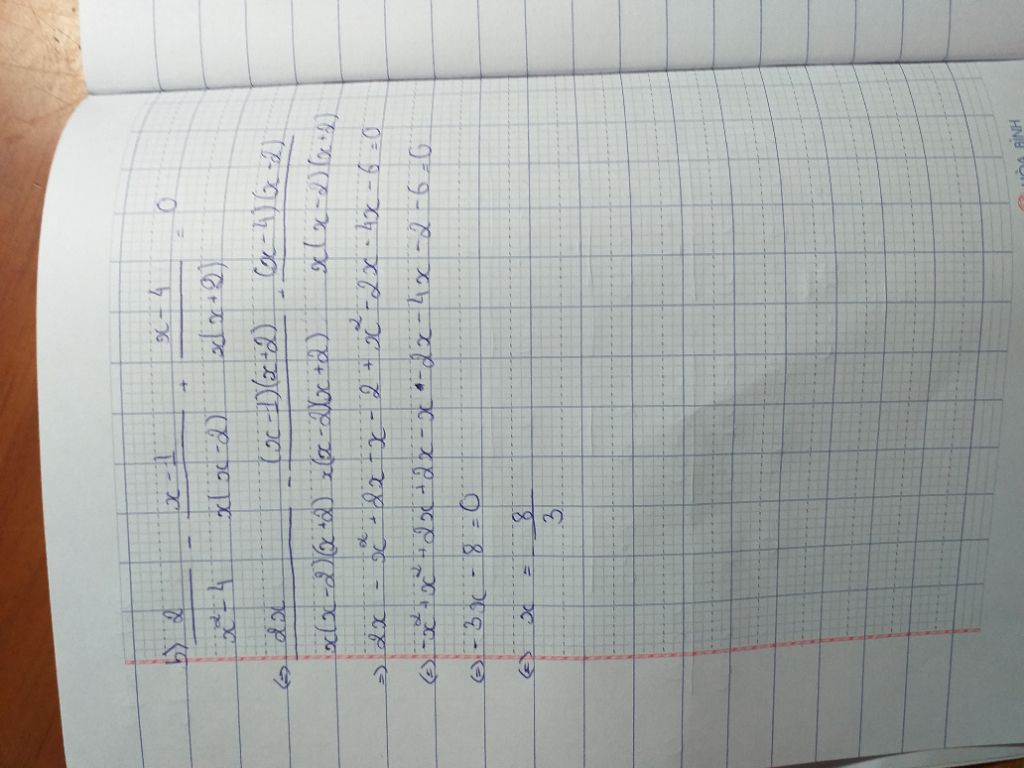 b) 2/(x²-4) - (x-1)/(x(x-2)) + (x-4)/(x(x+2)) = 0
(=) 2x/(x(x-2)(x+2)) - (x-1)(x+2)/(x(x-2)(x+2)) + (x-4)(x-2)/(x(x-2)(x+2))
=) 2x - x² + 2x - x - 2 + x² - 2x - 4x - 6 = 0
(=) -x² + x² + 2x + 2x - x - 2x - 4x - 2 - 6 = 0
(=) -3x - 8 = 0
(=) x = 8/3
HÒA BÌNH